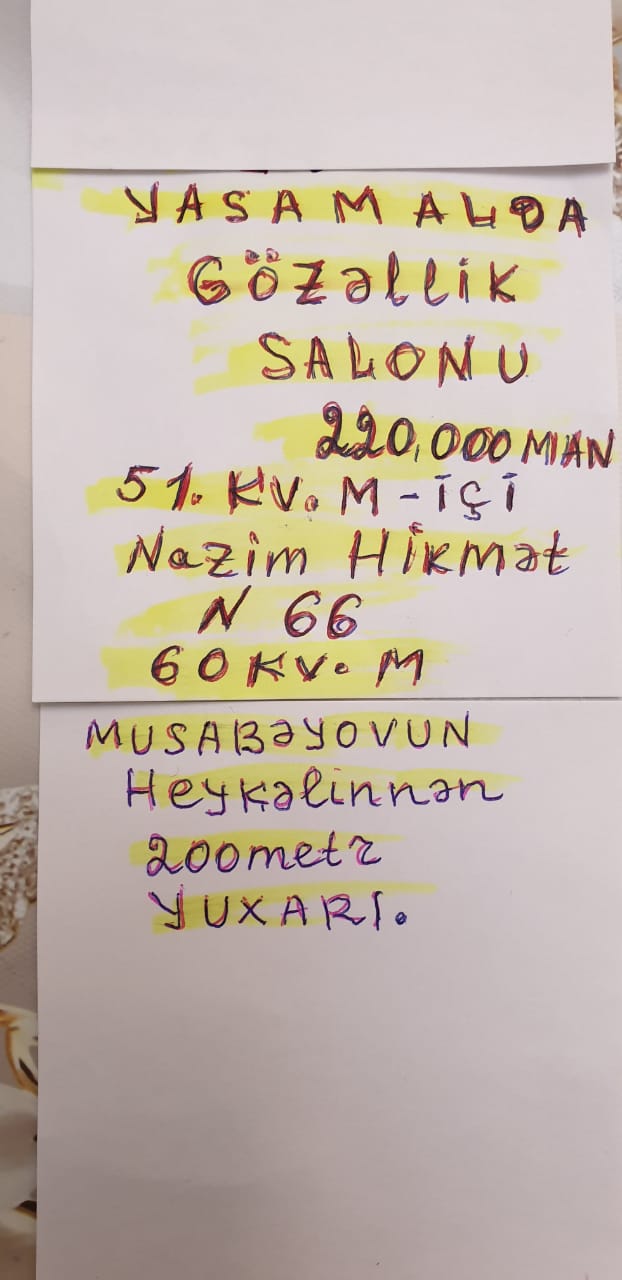 YASAMALDA
GÖZəllik
SALONU
220,000 MAN
51. KV. M - içi
Nazim Hikmət
N 66
60 KV. M
MUSABəYOVUN
Heykəlinnən
200metr
YUXARI.